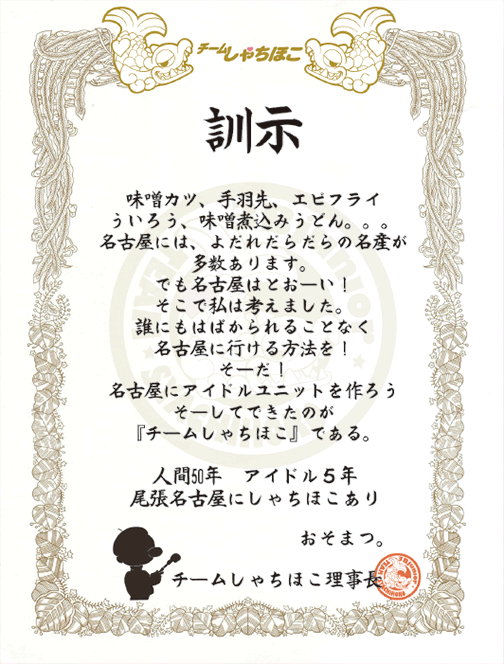 チームしゃちほこ
訓示
味噌カツ、手羽先、エビフライ
ういろう、味噌煮込みうどん。。。
名古屋には、よだれだらだらの名産が
多数あります。
でも名古屋はとおーい！
そこで私は考えました。
誰にもはばかられることなく
名古屋に行ける方法を！
そーだ！
名古屋にアイドルユニットを作ろう
そーしてできたのが
『チームしゃちほこ』である。
人間50年　アイドル５年
尾張名古屋にしゃちほこあり
おそまつ。
チームしゃちほこ理事長